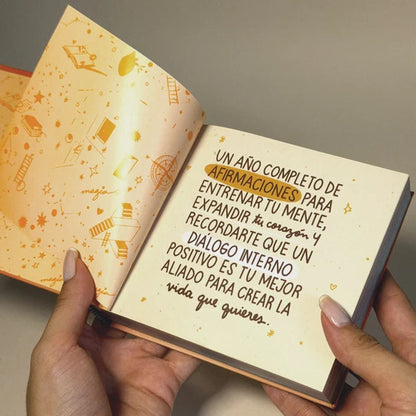 UN AÑO COMPLETO DE
AFIRMACIONES PARA
ENTRENAR TU MENTE,
EXPANDIR tu corazón Y
RECORDARTE QUE UN
DIÁLOGO INTERNO
POSITIVO ES TU MEJOR
ALIADO PARA CREAR LA
vida que quieres.